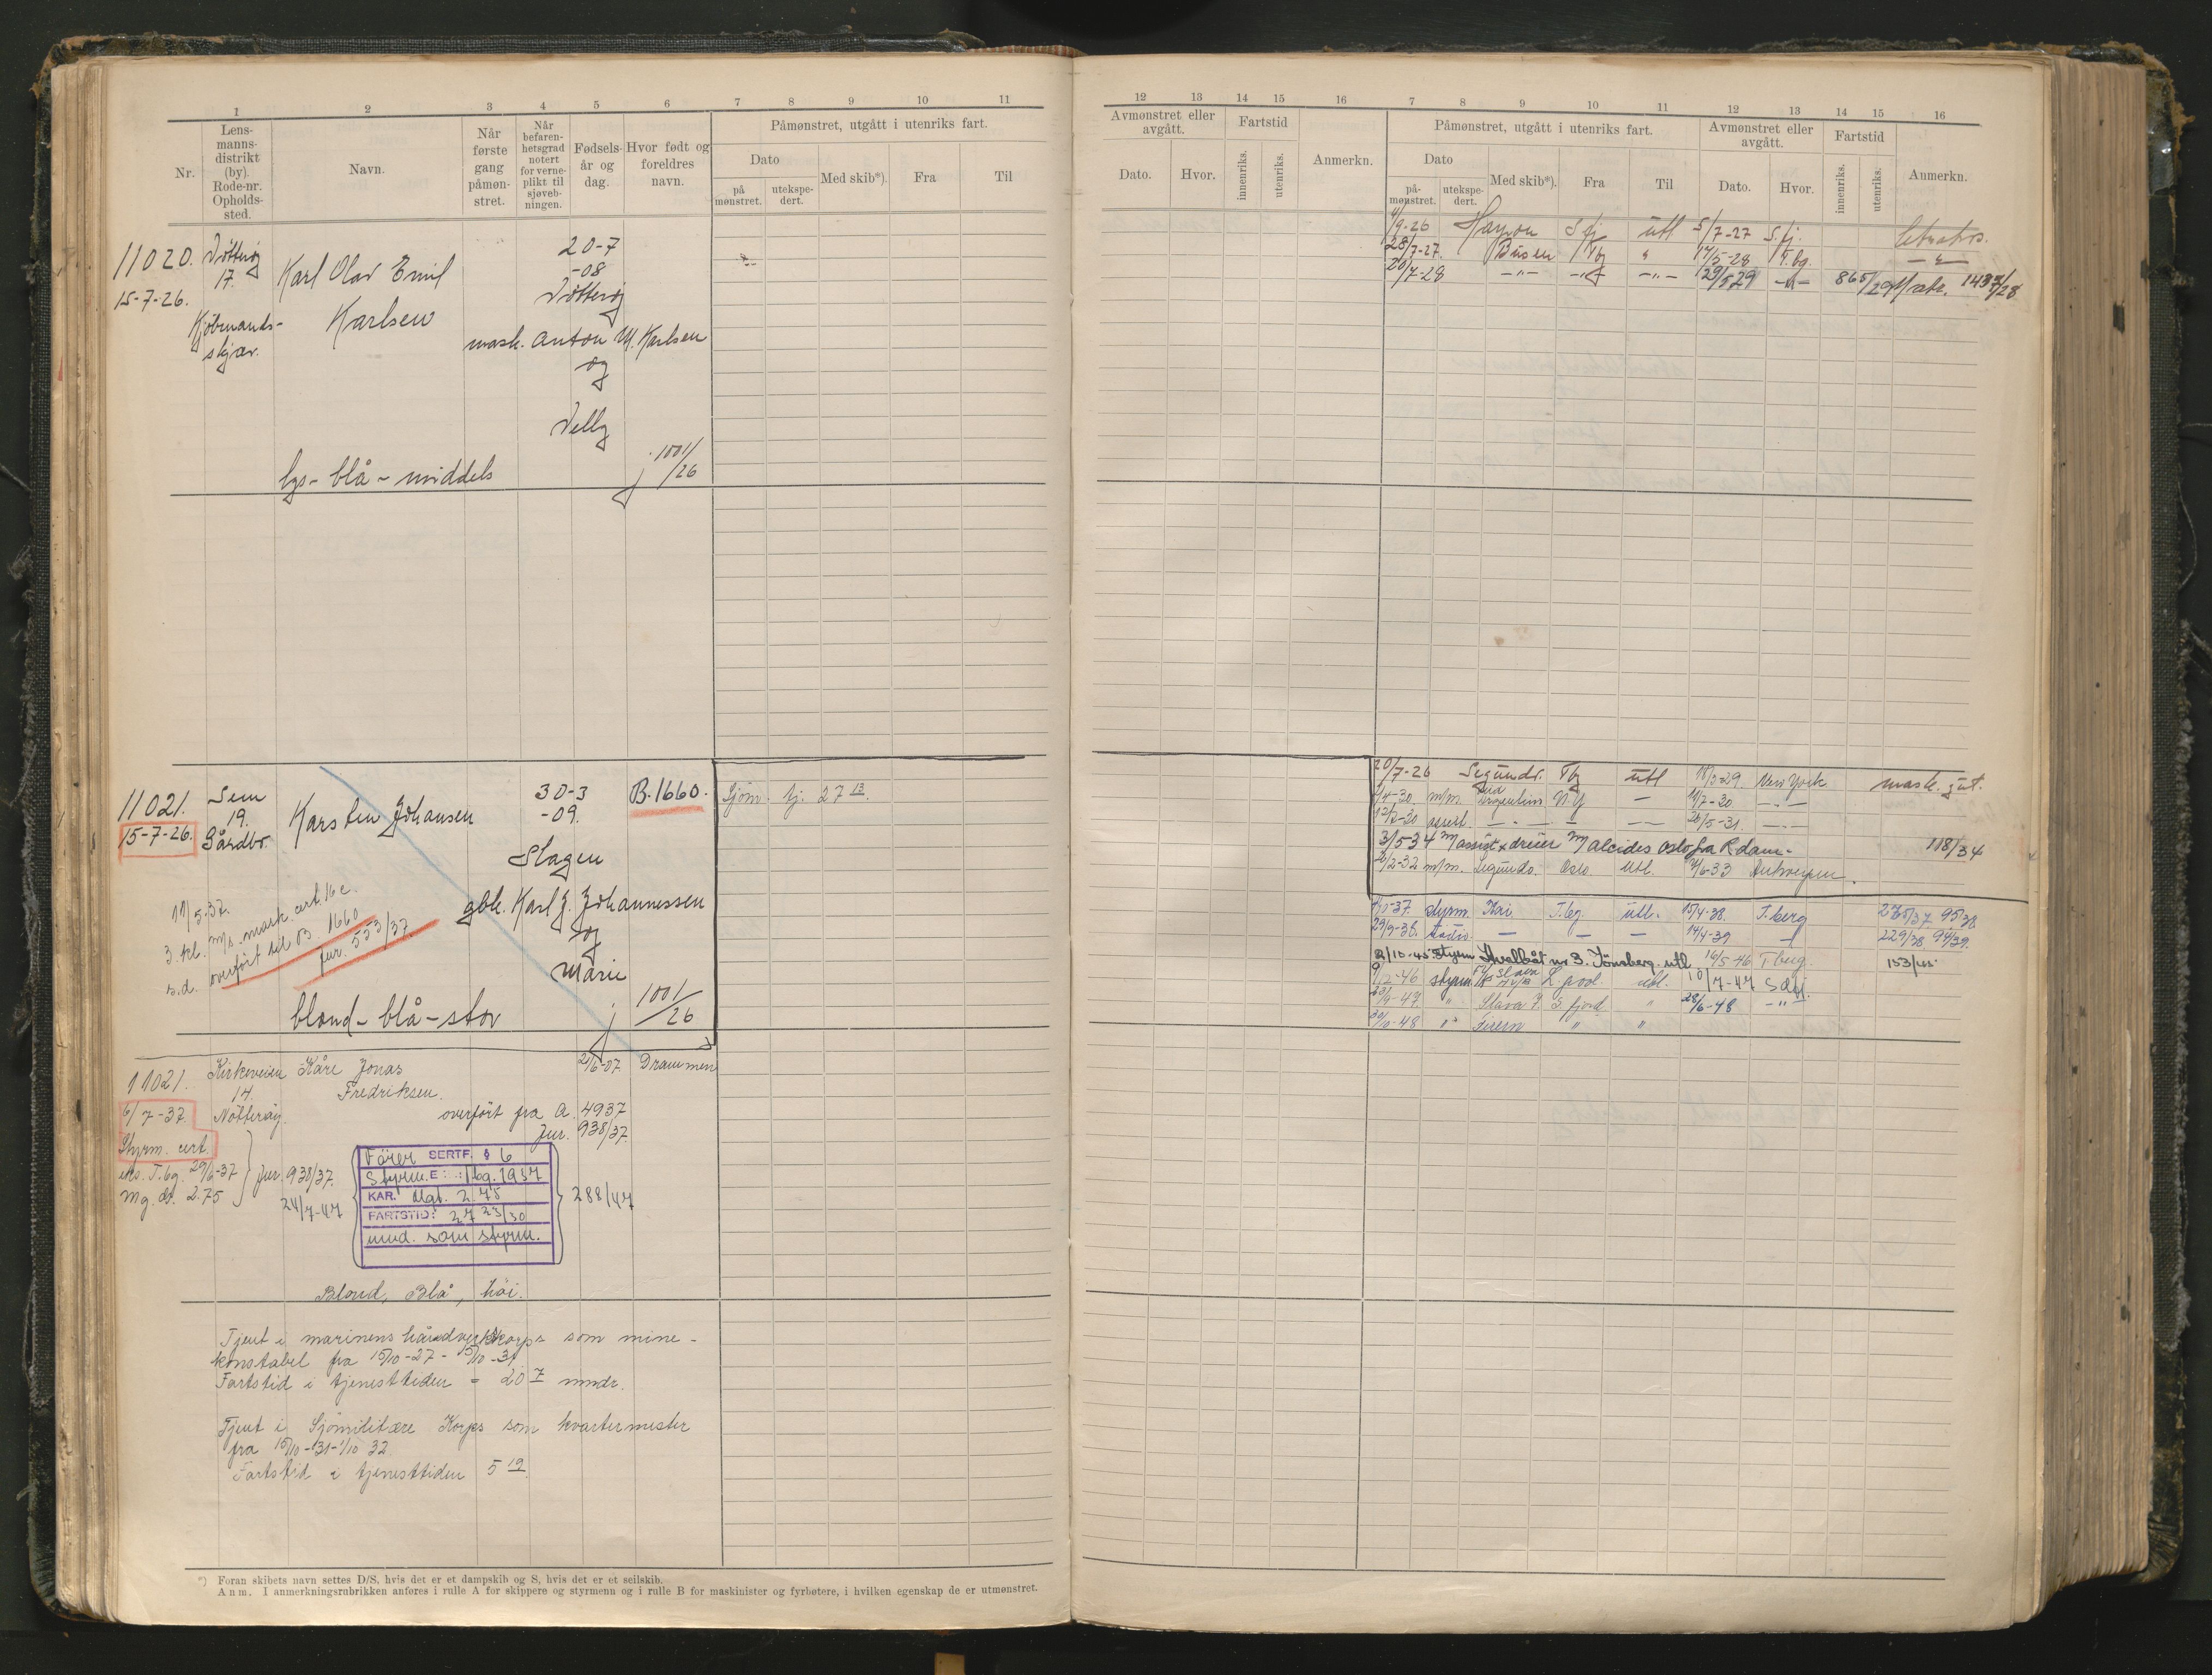 1 2 3 4 5 6 7 8 9 10 11
Nr.
Lens-
manns-
distrikt
(by).
Rode-nr.
Opholds-
sted.
Navn.
Når
første
gang
påmøn-
stret.
Når
befaren-
hetsgrad
notert
for verne-
plikt til
sjøveb-
ningen.
Fødsels-
år og
dag.
Hvor født og
foreldres
navn.
Påmønstret, utgått i utenriks fart.
Dato
på
mønstret.
utekspe-
dert.
Med skib*).
Fra
Til
11020.
15-7-26.
Nøtterøy
17.
Kjøbmands-
skjær.
Karl Olav Emil
Karlsen
20-7
-08
Nøtterøy
mask. Anton M. Karlsen
og
Nelly
lys - blå - middels
j 1001/26
11021.
15-7-26.
Sem
19.
Gårdbo.
Karsten Johansen
30-3
-09.
B. 1660.
Slagen
gbk. Karl J. Johannessen
og
Marie
11/5-37.
3. kl. m/s. mask. cert. 16c.
s.d. overført til B 1660
jur. 553/37.
blond - blå - stor
j 1001/26
Sjøm. tj. 27 13.
11021.
6/7-37.
Kirkeveien
14.
Nøtterøy.
Kåre Jonas
Fredriksen.
2/6-07 Drammen
overført fra A. 4937
Jur. 938/37.
Styrm. cert.
eks. T.bg. 29/6-37
mg. dr. 2.75
Jur. 938/37.
24/7-47
Fører SERTF. § 6
Styrm. E: Tbg. 1937
KAR. Mgt. 2.75
FARTSTID: 27 23/30
mnd. som styrm.
288/47
Blond, Blå, høi.
Tjent i marinens håndverkskorps som mine-
konstabel fra 15/10-27 - 15/10-31
Fartstid i tjenesttiden = 20 7 mndr.
Tjent i Sjømilitære Korps som kvartermester
fra 15/10-31-1/10 32.
Fartstid i tjenesttiden 5 19.
*) Foran skibets navn settes D/S, hvis det er et dampskib og S, hvis det er et seilskib.
Anm. I anmerkningsrubrikken anføres i rulle A for skippere og styrmenn og i rulle B for maskinister og fyrbøtere, i hvilken egenskap de er utmønstret.
12 13 14 15 16 7 8 9 10 11 12 13 14 15 16
Avmønstret eller
avgått.
Fartstid
Dato.
Hvor.
innenriks.
utenriks.
Anmerkn.
Påmønstret, utgått i utenriks fart.
Dato
på-
mønstret.
utekspe-
dert.
Med skib*).
Fra
Til
Avmønstret eller
avgått.
Dato.
Hvor.
Fartstid
innenriks.
utenriks.
Anmerkn.
4/9-26 Harpon S.fj. utl 5/7-27 S.fj.
28/7-27. Busen Tbg " 14/5-28 T.bg. — " —
20/7-28 — " — — " — — " — 29/5 29 — " — 865/29 Matr. 1437/28
20/7-26 Segundo. Tbg utl 18/3-29 New York mask. gut.
1/4-30. m/m. Dronenheim N.Y — 11/7-30 — " —
12/7-30 assist. — " — — — 26/5-31. — " —
3/5 34 m/assist & dreier m/ Alcides Oslo fra Rdam - 118/34
20/2-32 m/m. Segundo. Oslo Utl. 7/6-33 Antwerpen.
1/10-37. styrm. Kai T.bg. utl. 15/4-38. T.berg 285/37. 95/38
29/9-38. — — — 14/4-39 — 229/38 94/39.
2/10-45 Styrm Hvalbåt nr 3. Tønsberg utl 16/5-46 Tberg. 153/45.
9/12-46 styrm L.pool. utl. 10/7-47 S.fj.
23/9-47. " Slava 7 S.fjord " 28/6-48 — " —
30/10-48 " Fiern " "